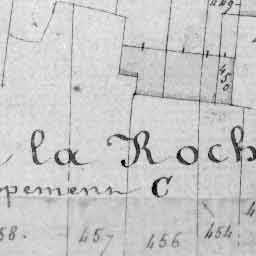 449.
450
la Roch
ppement C
58. 457 456 454.